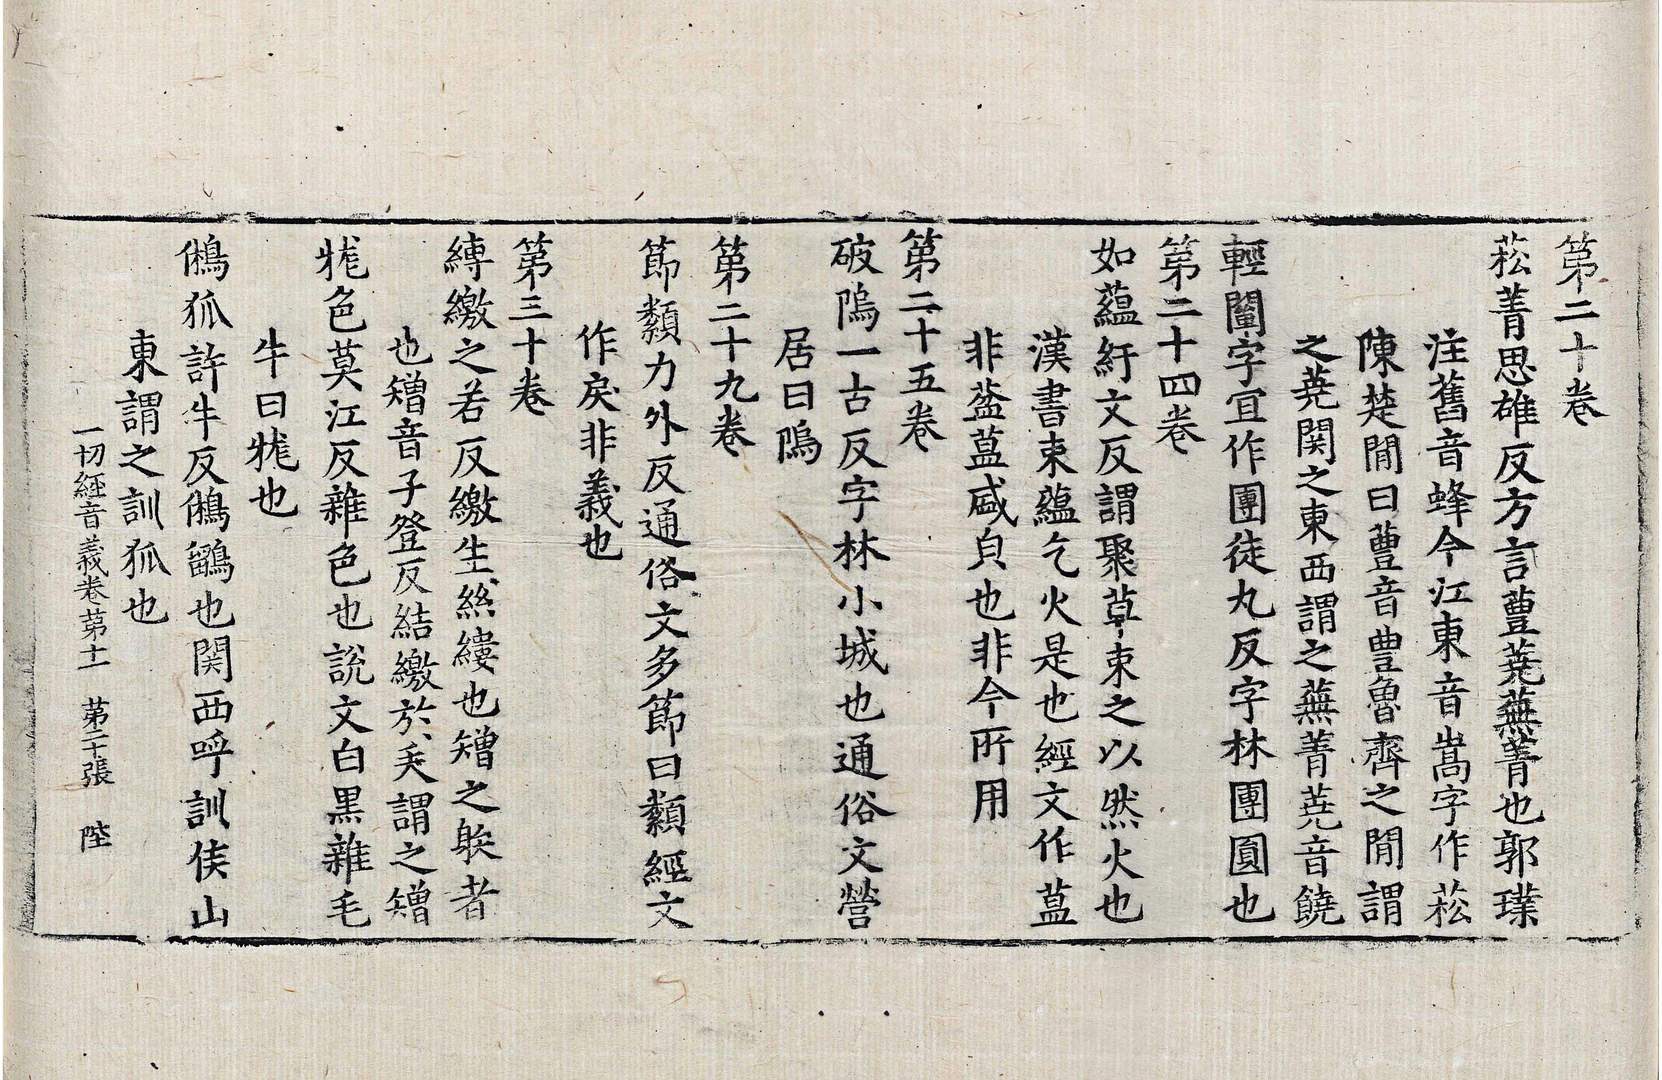 第二十卷
菘菁思雄反方言䕼蕘蕪菁也郭璞
注舊音蜂今江東音嵩字作菘
陳楚閒曰䕼音豊魯齊之閒謂
之蕘関之東西謂之蕪菁蕘音饒
輕闡字宜作團徒丸反字林團圓也
第二十四卷
如蘊紆文反謂聚草束之以㷊火也
漢書束蘊乞火是也經文作葅
非葢葅盛皃也非今所用
第二十五卷
破隝一古反字林小城也通俗文營
居曰隝
第二十九卷
節纇力外反通俗文多節曰纇經文
作戾非義也
第三十卷
縛繳之若反繳生絲縷也矰之躲者
也矰音子登反結繳於矢謂之矰
牻色莫江反雜色也說文白黒雜毛
牛曰牻也
鵂狐許牛反鵂鶹也関西呼訓侯山
東謂之訓狐也
一切經音義卷苐十一 苐二十張 陛